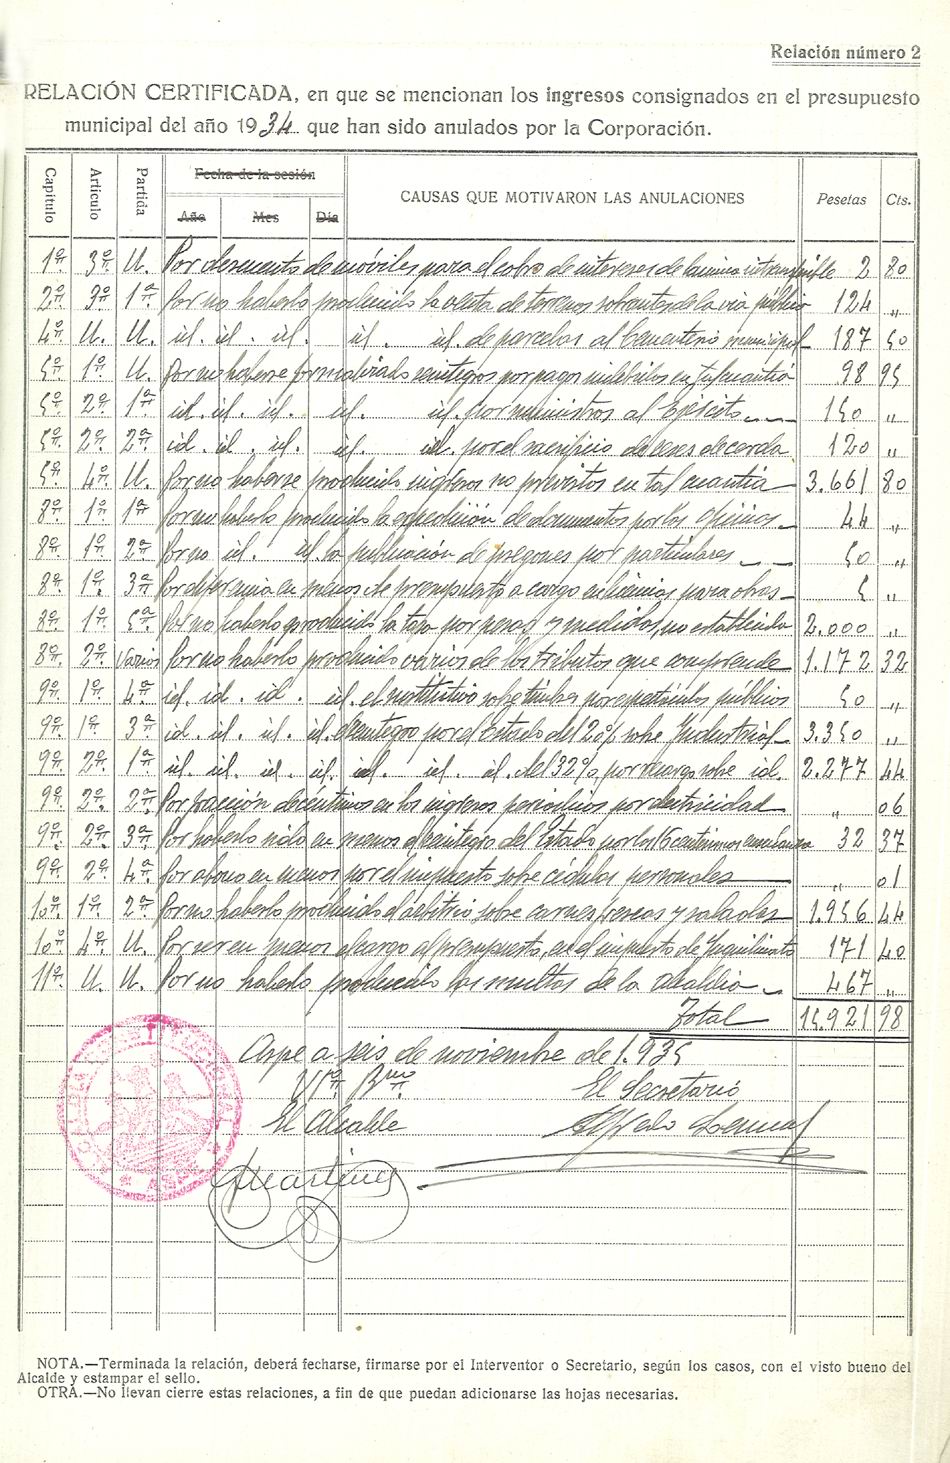 Relación número 2
RELACIÓN CERTIFICADA, en que se mencionan los ingresos consignados en el presupuesto
municipal del año 1934 que han sido anulados por la Corporación.
Capítulo Artículo Partida Fecha de la sesión Año Mes Día CAUSAS QUE MOTIVARON LAS ANULACIONES Pesetas Cts.
1º 3º U. Por descuento de móviles para el cobro de intereses de lámina intransferible 2 80
2º 3º 1ª Por no haberlo producido la venta de terrenos sobrantes de la vía pública 124 "
4º U. U. id. id. id. id. id. de parcelas al Cementerio municipal 187 50
5º 1º U. Por no haberse formalizado reintegros por pagos indebidos en tal cuantía 98 95
5º 2º 1ª id. id. id. id. id. por suministros al Ejército 150 "
5º 2º 2ª id. id. id. id. id. por el sacrificio de reses de cerda 120 "
5º 4º U. Por no haberse producido ingresos no previstos en tal cuantía 3.661 80
8º 1º 1ª Por no haberlo producido la expedición de documentos por las oficinas 44 "
8º 1º 2ª Por no id. id. la publicación de pregones por particulares 50 "
8º 1º 3ª Por diferencia en menos de presupuesto a cargo en licencias para obras 5 "
8º 1º 5ª Por no haberlo producido la tasa por pesas y medidas, no establecida 2.000 "
8º 2º Varios Por no haberlo producido varios de los tributos que comprende 1.172 32
9º 1º 4ª id. id. id. id. el sustitutivo sobre timbre por espectáculos públicos 50 "
9º 1º 3ª id. id. id. id. reintegro por el Estado del 20% sobre Industrial 3.350 "
9º 2º 1ª id. id. id. id. id. id. id. del 32%, por recargo sobre id. 2.277 44
9º 2º 2ª Por fracción de céntimos en los ingresos periódicos por electricidad " 06
9º 2º 3ª Por haberlo sido en menos el reintegro del Estado por los 16 céntimos 32 37
9º 2º 4ª Por abono en menos por el impuesto sobre cédulas personales " 01
10º 1º 2ª Por no haberlo producido el arbitrio sobre carnes frescas y saladas 1.956 44
10º 4º U. Por ser en menos el cargo al presupuesto, en el impuesto de Inquilinato 171 40
11º U. U. Por no haberlo producido las multas de la alcaldía 467 "
Total 15.921 98
Aspe a seis de noviembre de 1.935
Vto Bno El Secretario
El Alcalde
NOTA.—Terminada la relación, deberá fecharse, firmarse por el Interventor o Secretario, según los casos, con el visto bueno del
Alcalde y estampar el sello.
OTRA.—No llevan cierre estas relaciones, a fin de que puedan adicionarse las hojas necesarias.